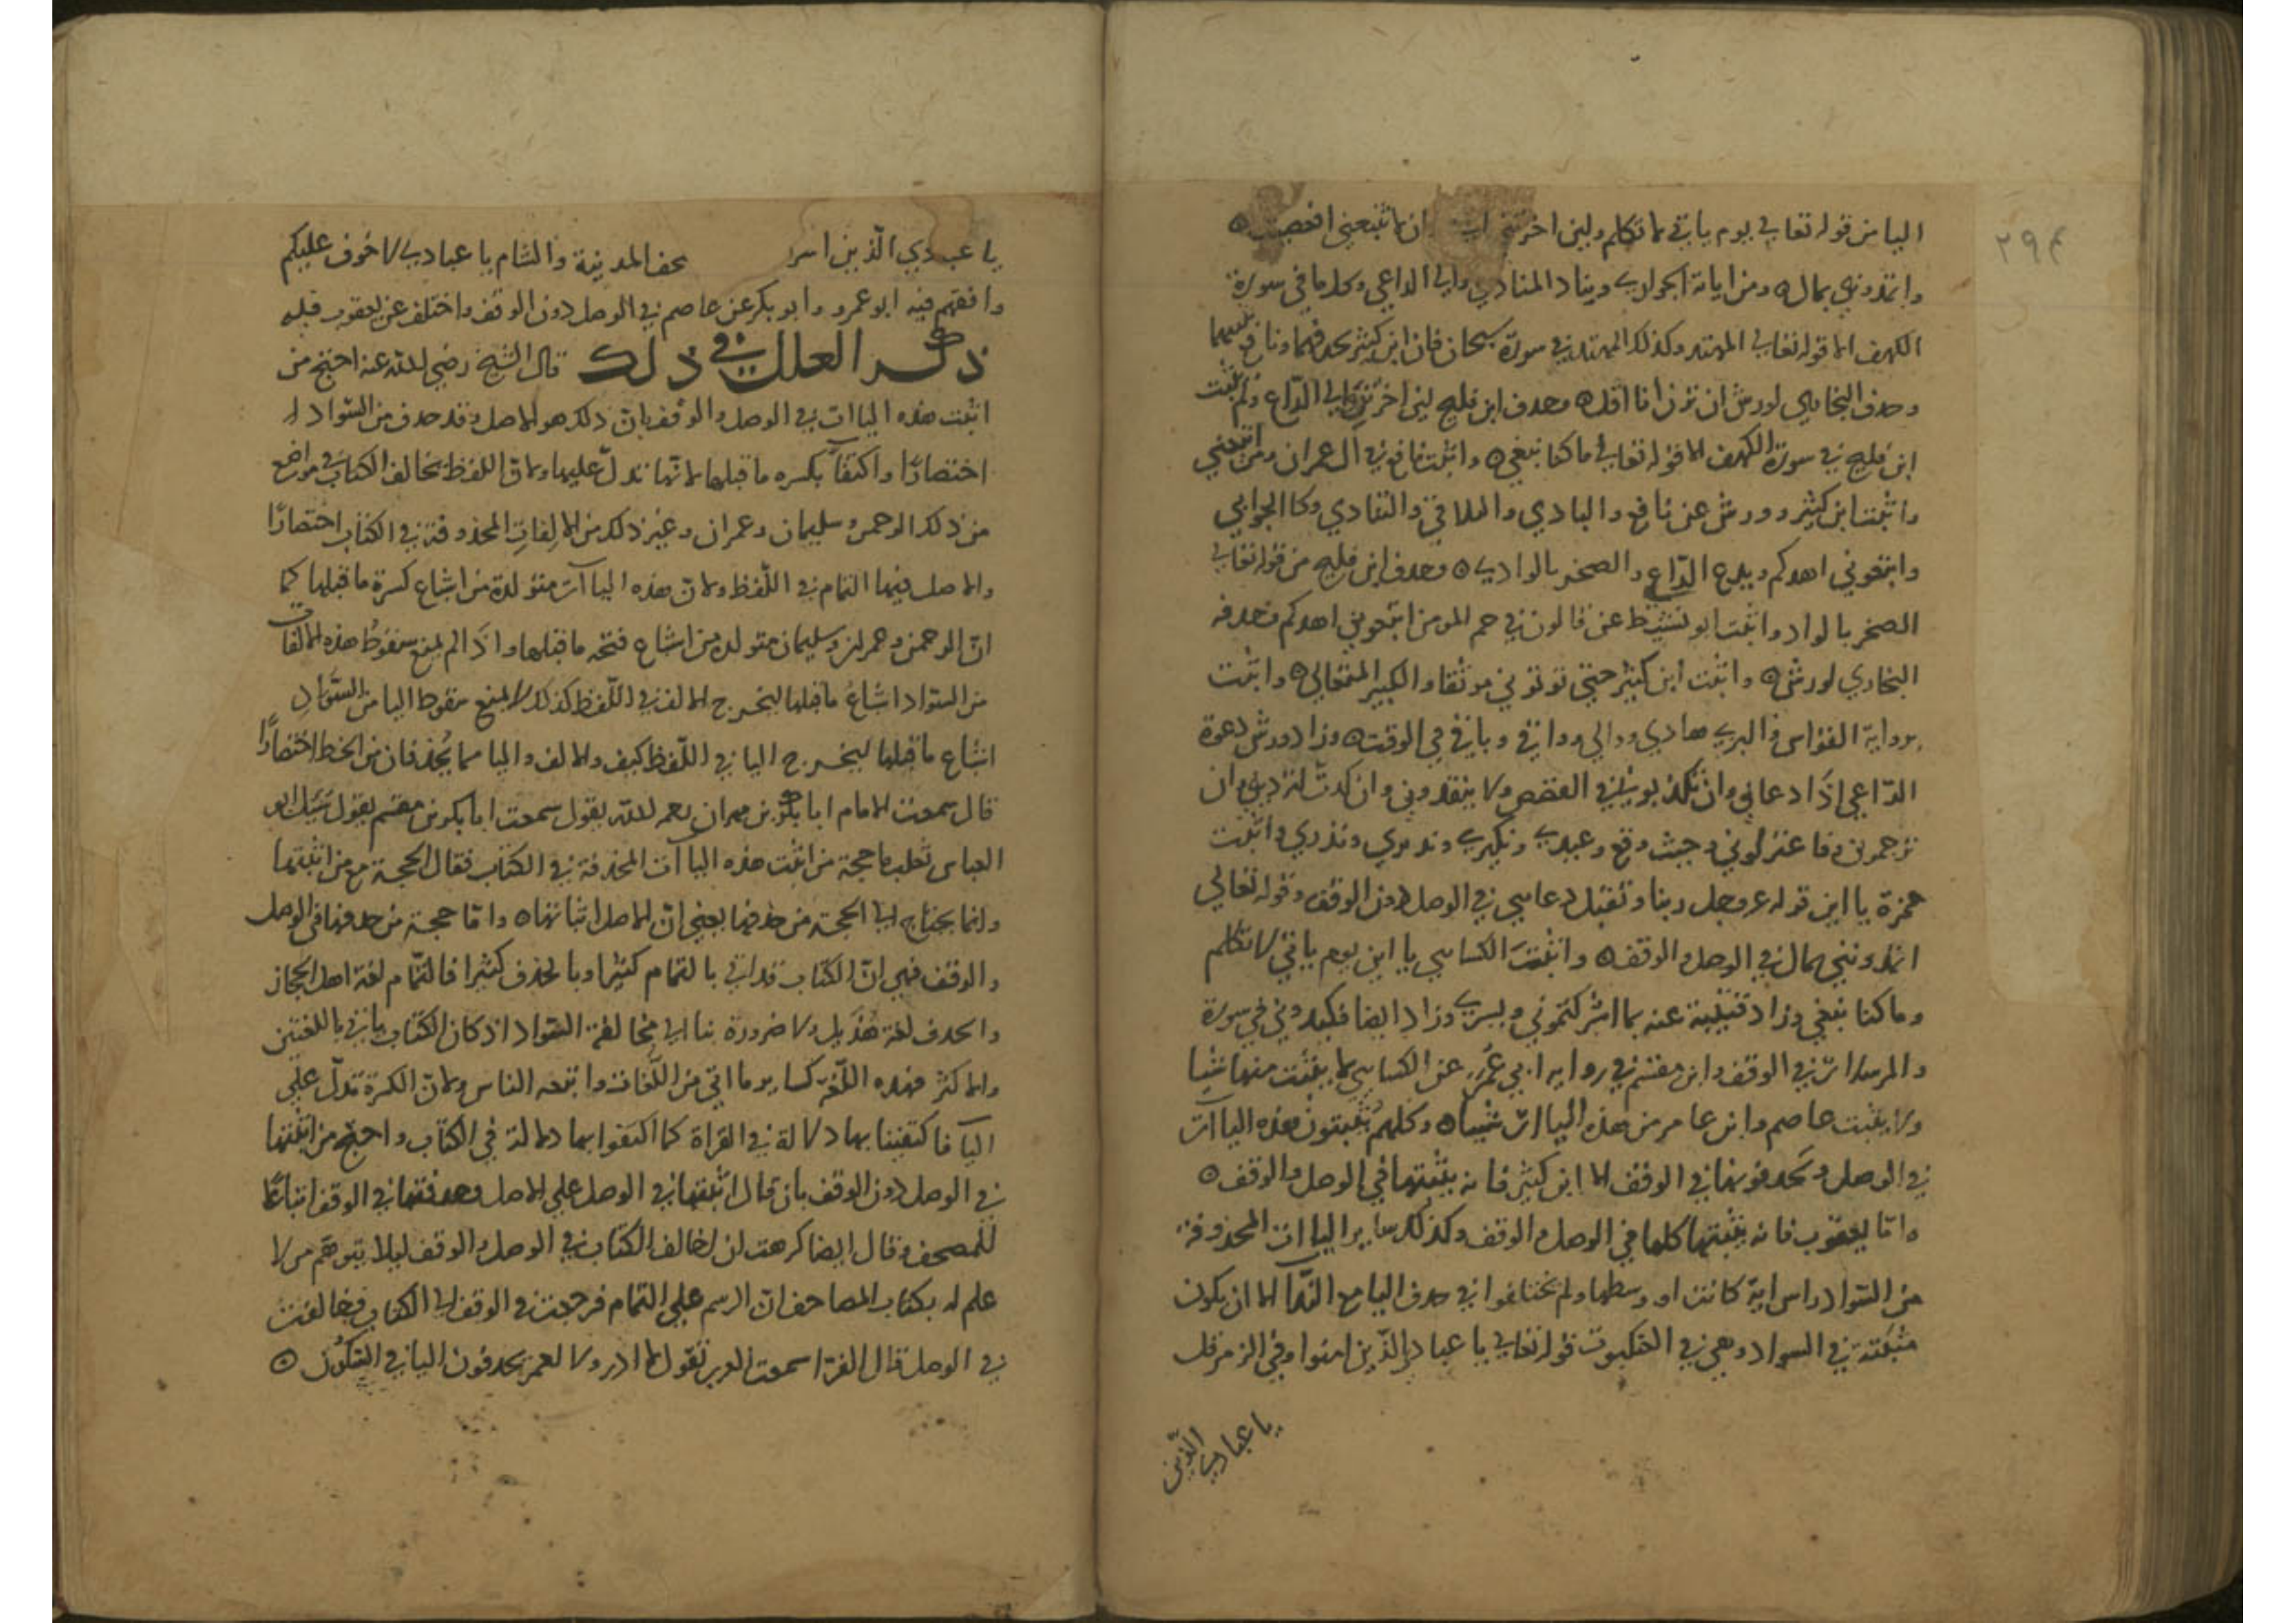 ٢٩٤
اليا من قوله تعالى يوم ياتي لا تكلم ولين اخرتني ان لا تتبعني افعصيت
واتمدونني بمال ومن اياته الجواري ويناد المنادي والى الداعي وكلما في سورة
الكهف الا قوله تعالى المهتد وكذلك المهتد في سورة سبحان فان ابن كثير يحذفهما ونافع يثبتهما
وحذف البخاري لورش ان ترن انا اقل وحذف ابن فليح لين اخرتن والى الداع ولم يثبت
ابن فليح في سورة الكهف الا قوله تعالى ما كنا نبغي واثبت نافع في ال عمران ومن اتبعني
واثبت ابن كثير وورش عن نافع والبادي والتلاقي والتنادي وكالجوابي
واتبعوني اهدكم ويدع الداع والصخر بالوادي وحذف ابن فليح من قوله تعالى
الصخر بالواد واثبت ابو نشيط عن قالون في حم المومن اتبعوني اهدكم وحذفه
البخاري لورش واثبت ابن كثير حتى توتوني موثقا والكبير المتعالي واثبت
برواية القواس والبزي هادي ووالي وواقي وباقي في الوقف وزاد ورش دعوة
الداعي اذا دعاني وان يكذبوني في القصص ولا ينقذوني وان كدت لتزديني وان
ترجموني وفاعتزلوني وحيث وقع وعيدي ونكيري ونذيري ونذري واثبت
حمزة يا اين قوله عز وجل ربنا وتقبل دعايي في الوصل دون الوقف وقوله تعالى
اتمدونني بمال في الوصل والوقف واثبت الكسايي يا اين يوم ياتي لا تكلم
وما كنا نبغي وزاد قتيبة عنه بما اشركتموني ويسري وزاد ايضا فكيدوني في سورة
والمرسلات في الوقف وابن مقسم في رواية ابي عمر عن الكسايي لا يثبت منها شيا
ولا يثبت عاصم وابن عامر من هذه الياات شيا وكلهم يثبتون هذه الياات
في الوصل ويحذفونها في الوقف الا ابن كثير فانه يثبتها في الوصل والوقف
واما يعقوب فانه يثبتها كلها في الوصل والوقف وكذلك ساير الياات المحذوفة
من السواد راس اية كانت او وسطها ولم يختلفوا في حذف اليا مع الندا الا ان يكون
مثبتة في السواد وهي في العنكبوت قوله تعالى يا عبادي الذين امنوا وفي الزمر قل
يا عبادي الذين
يا عبادي الذين اسر مصحف المدينة والشام يا عبادي لا خوف عليكم
وافقهم فيه ابو عمرو وابو بكر عن عاصم في الوصل دون الوقف واختلف عن يعقوب فيه
ذكر العلل في ذلك قال الشيخ رضي الله عنه احتج من
اثبت هذه الياات في الوصل والوقف بان ذلك هو الاصل وقد حذف من السواد
اختصارا واكتفآ بكسره ما قبلها لانها تدل عليها ولان اللفظ يخالف الكتاب في مواضع
من ذلك الرحمن وسليمان وعمران وغير ذلك من الالفات المحذوفة في الكتاب اختصارا
والاصل فيها التمام في اللفظ ولان هذه الياآت متولدة من اشباع كسرة ما قبلها كما
ان الرحمن وعمران وسليمان متولدة من اشباع فتحه ما قبلها واذا لم يمنع سقوط هذه الالفات
من السواد اشباع ما قبلها ليخرج الالف في اللفظ كذلك لا يمنع سقوط اليا من السواد
اشباع ما قبلها ليخرج اليا في اللفظ كيف والالف واليا مما يحذفان من الخط اختصارا
قال سمعت الامام ابا بكر بن مهران رحمه الله يقول سمعت ابا بكر بن مقسم يقول سئل ابو
العباس ثعلب ما حجة من اثبت هذه الياآت المحذوفة في الكتاب فقال الحجة مع من اثبتها
وانما يحتاج الى الحجة من حذفها يعني ان الاصل اثباتها واما حجة من حذفها في الوصل
والوقف فهي ان الكتاب قد اتى بالتمام كثيرا وبالحذف كثيرا فالتمام لغة اهل الحجاز
والحذف لغة هذيل ولا ضرورة بنا الى مخالفة السواد اذ كان الكتاب ياتي باللغتين
والاكثر فهذه اللغة كساير ما اتى من اللغات واتبعه الناس ولان الكسرة تدل على
اليآ فاكتفينا بها دلالة في القراة كما اكتفوا بها دلالة في الكتاب واحتج من اثبتها
في الوصل دون الوقف بان قال اثبتها في الوصل على الاصل وحذفتها في الوقف اتباعا
للمصحف وقال ايضا كرهت ان اخالف الكتاب في الوصل والوقف ليلا يتوهم من لا
علم له بكتاب المصاحف ان الرسم على التمام فرجعت في الوقف الى الكتاب وخالفت
في الوصل قال الفرا سمعت العرب تقول لا ادر ولا لعمر يحذفون اليا في السكون